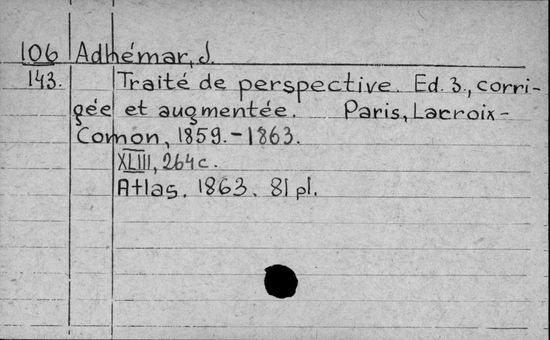 106 Adhémar, J.
143. Traité de perspective. Ed. 3., corri-
gée et augmentée. Paris, Lacroix-
Comon, 1859.-1863.
XLIII, 264c.
Atlas. 1863. 81 pl.